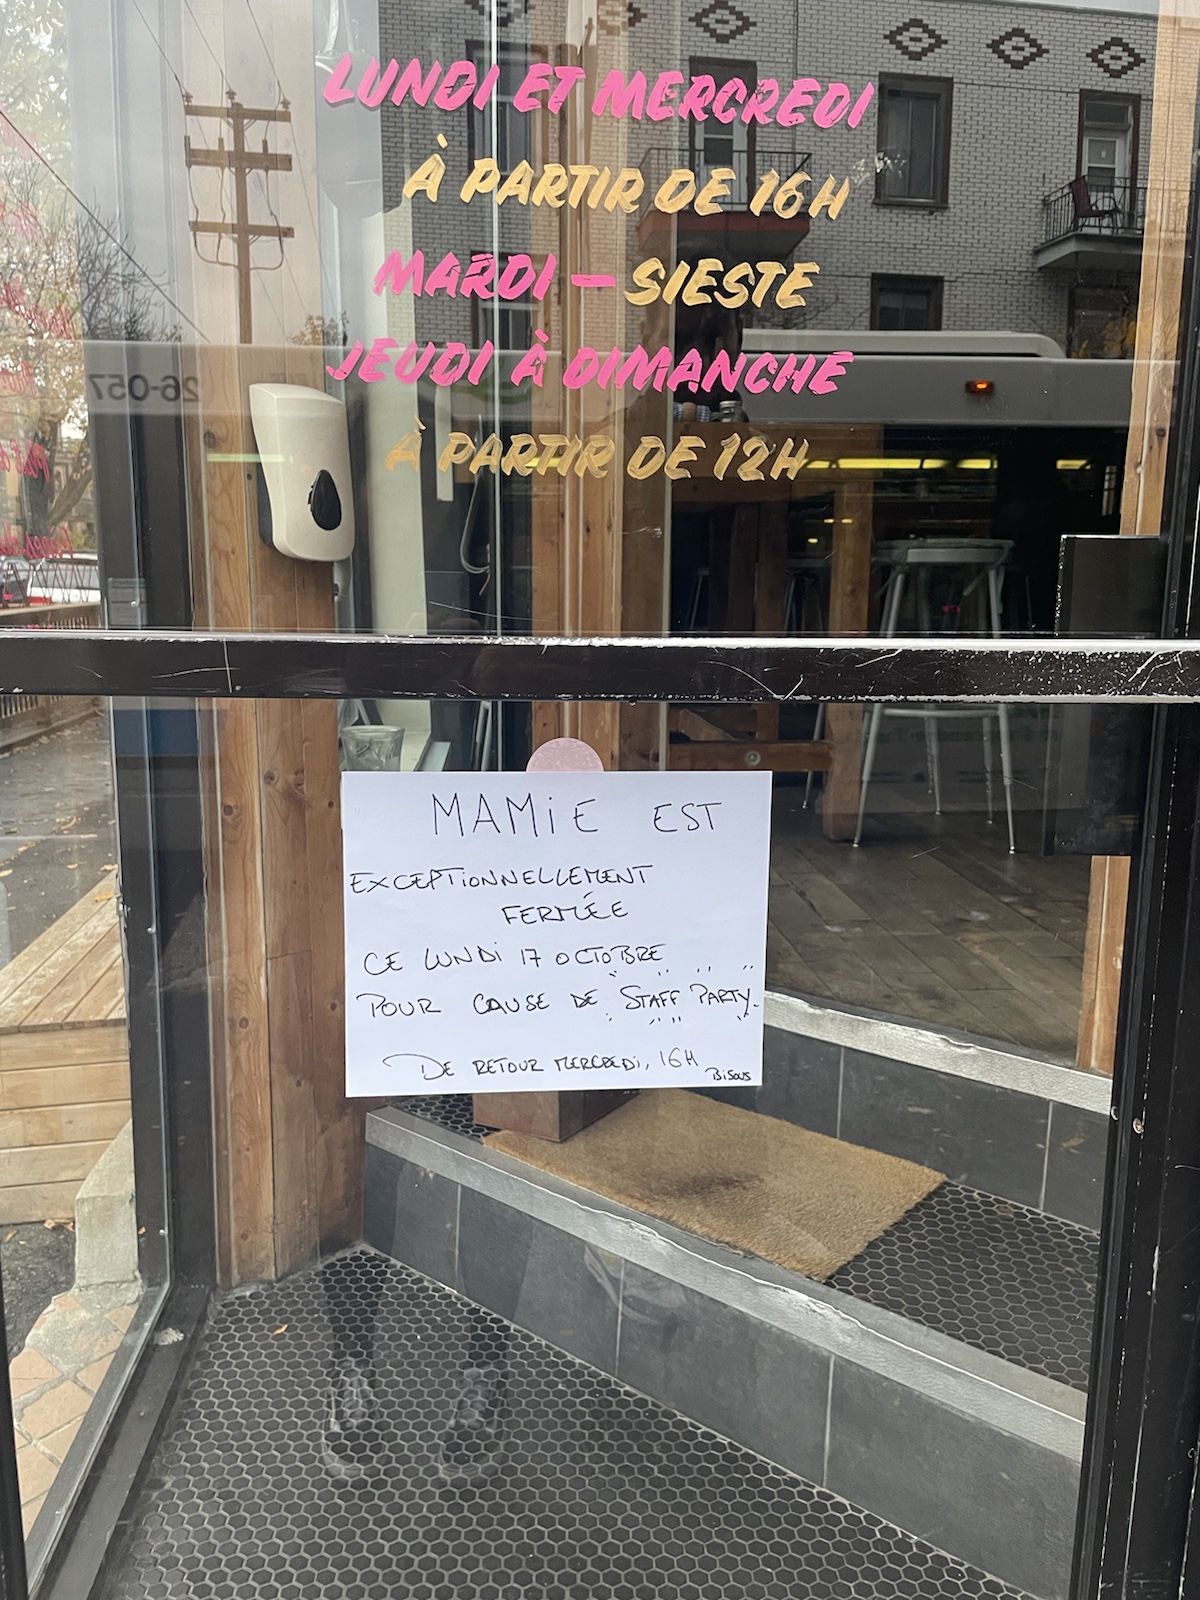 LUNDI ET MERCREDI
À PARTIR DE 16H
MARDI – SIESTE
JEUDI À DIMANCHE
À PARTIR DE 12H
26-057
MAMiE EST
EXCEPTIONNELLEMENT
FERMÉE
CE LUNDi 17 OCTOBRE
POUR CAUSE DE "STAFF PARTY"
DE RETOUR MERCREDi, 16H
Bisous